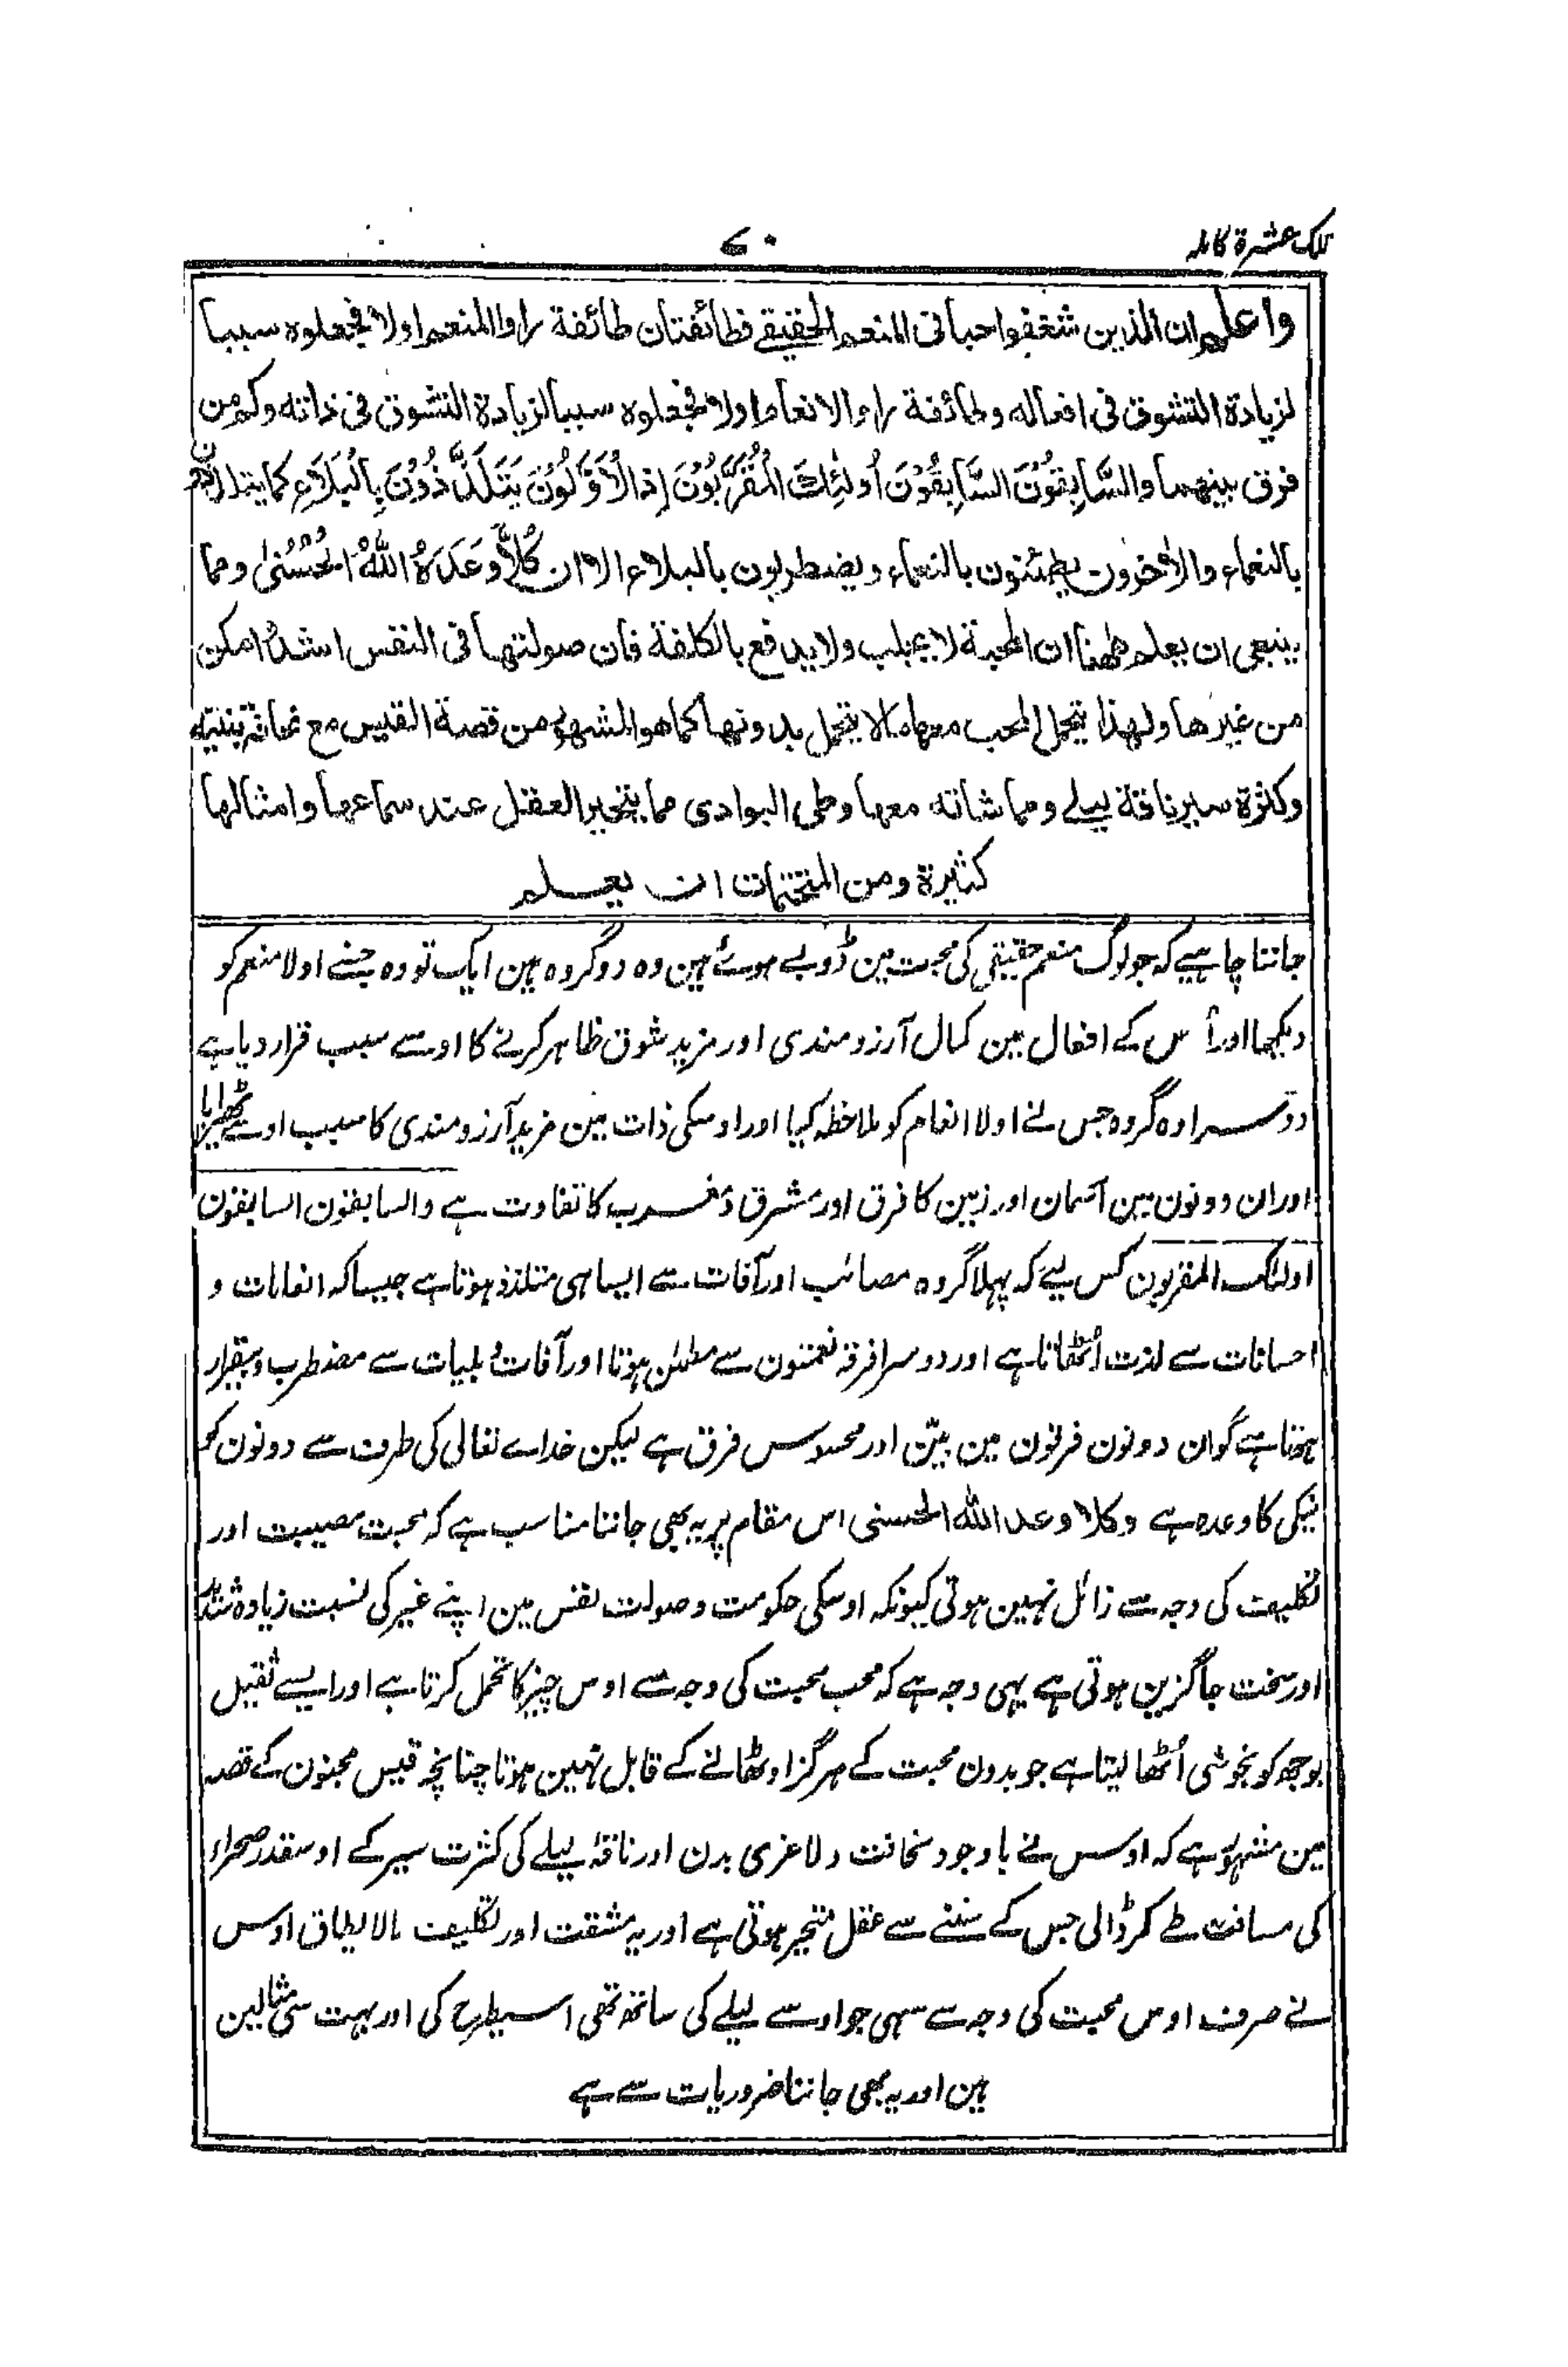 تلک عشرة کاملہ
۷۰
واعلم ان الذین شغفوا حبا فی المنعم الحقیقے فطائفتان طائفة راوا المنعم اولا فجعلوه سببا
لزیادة التشوق فی افعاله وطائفة راوا الانعام اولا فجعلوه سببا لزیادة التشوق فی ذاته وکم من
فرق بینهما والسَّابِقُوْنَ السَّابِقُوْنَ اُولٰئِكَ الْمُقَرَّبُوْنَ اِذِ الْاَوَّلُوْنَ یَتَلَذَّذُوْنَ بِالْبَلَاءِ کما یتلذذون
بالنعماء والاٰخرون یطمئنون بالنعماء ویضطربون بالبلاء الا ان کُلًّا وَعَدَهُ اللّٰهُ الْحُسْنٰی ومما
ینبغی ان یعلم ههنا ان المحبة لا یجلب ولا یدفع بالکلفة فان صولتها فی النفس اشد امکن
من غیرها ولهذا یتحمل المحب معها ما لا یتحمل بدونها کما هو المشهور من قصة القیس مع نحافة بنیته
وکثرة سیر ناقة لیلے ومماشاته معها وطی البوادی مما یتحیر العقل عند سماعها وامثالها
کثیرة ومن المتحتمات ان یعلم
جاننا چاہیے کہ جو لوگ منعم حقیقی کی محبت مین ڈوبے ہوئے ہین وہ دو گروہ ہین ایک تو وہ جسنے اولا منعم کو
دیکھا اور اُس کے افعال مین کمال آرزومندی اور مزید شوق ظاہر کرنے کا اوسے سبب قرار دیا ہے
دوسرا وہ گروہ جس نے اولا انعام کو ملاحظہ کیا اور اوسکی ذات مین مزید آرزومندی کا سبب اوسے ٹھہرایا
اور ان دونون مین آسمان اور زمین کا فرق اور مشرق و مغرب کا تفاوت ہے والسابقون السابقون
اولئک المقربون کس لیے کہ پہلا گروہ مصائب اور آفات سے ایسا ہی متلذذ ہوتا ہے جیسا کہ انعامات و
احسانات سے لذت اُٹھاتا ہے اور دوسرا فرقہ نعمتون سے مطمئن ہوتا اور آفات و بلیات سے مضطرب و بیقرار
ہوتا ہے گو ان دونون فرقون مین بیّن اور محسوس فرق ہے لیکن خداے تعالی کی طرف سے دونون کو
نیکی کا وعدہ ہے وکلا وعد الله الحسنی اس مقام پر یہ بھی جاننا مناسب ہے کہ محبت مصیبت اور
تکلیف کی وجہ سے زائل نہین ہوتی کیونکہ اوسکی حکومت و صولت نفس مین اپنے غیر کی نسبت زیادہ شدید
اور سخت جاگزین ہوتی ہے یہی وجہ ہے کہ محب محبت کی وجہ سے اوس چیز کا تحمل کرتا ہے اور ایسے ثقیل
بوجھ کو بخوشی اُٹھا لیتا ہے جو بدون محبت کے ہرگز اوٹھانے کے قابل نہین ہوتا چنانچہ قیس مجنون کے قصہ
مین مشہور ہے کہ اوس نے باوجود نحافت و لاغری بدن اور ناقۂ لیلے کی کثرت سیر کے اوسقدر صحراء
کی مسافت طے کر ڈالی جس کے سننے سے عقل متحیر ہوتی ہے اور یہ مشقت اور تکلیف مالا یطاق اوس
نے صرف اوس محبت کی وجہ سے سہی جو اوسے لیلے کی ساتھ تھی اسیطرح کی اور بہت سی مثالین
ہین اور یہ بھی جاننا ضروریات سے ہے